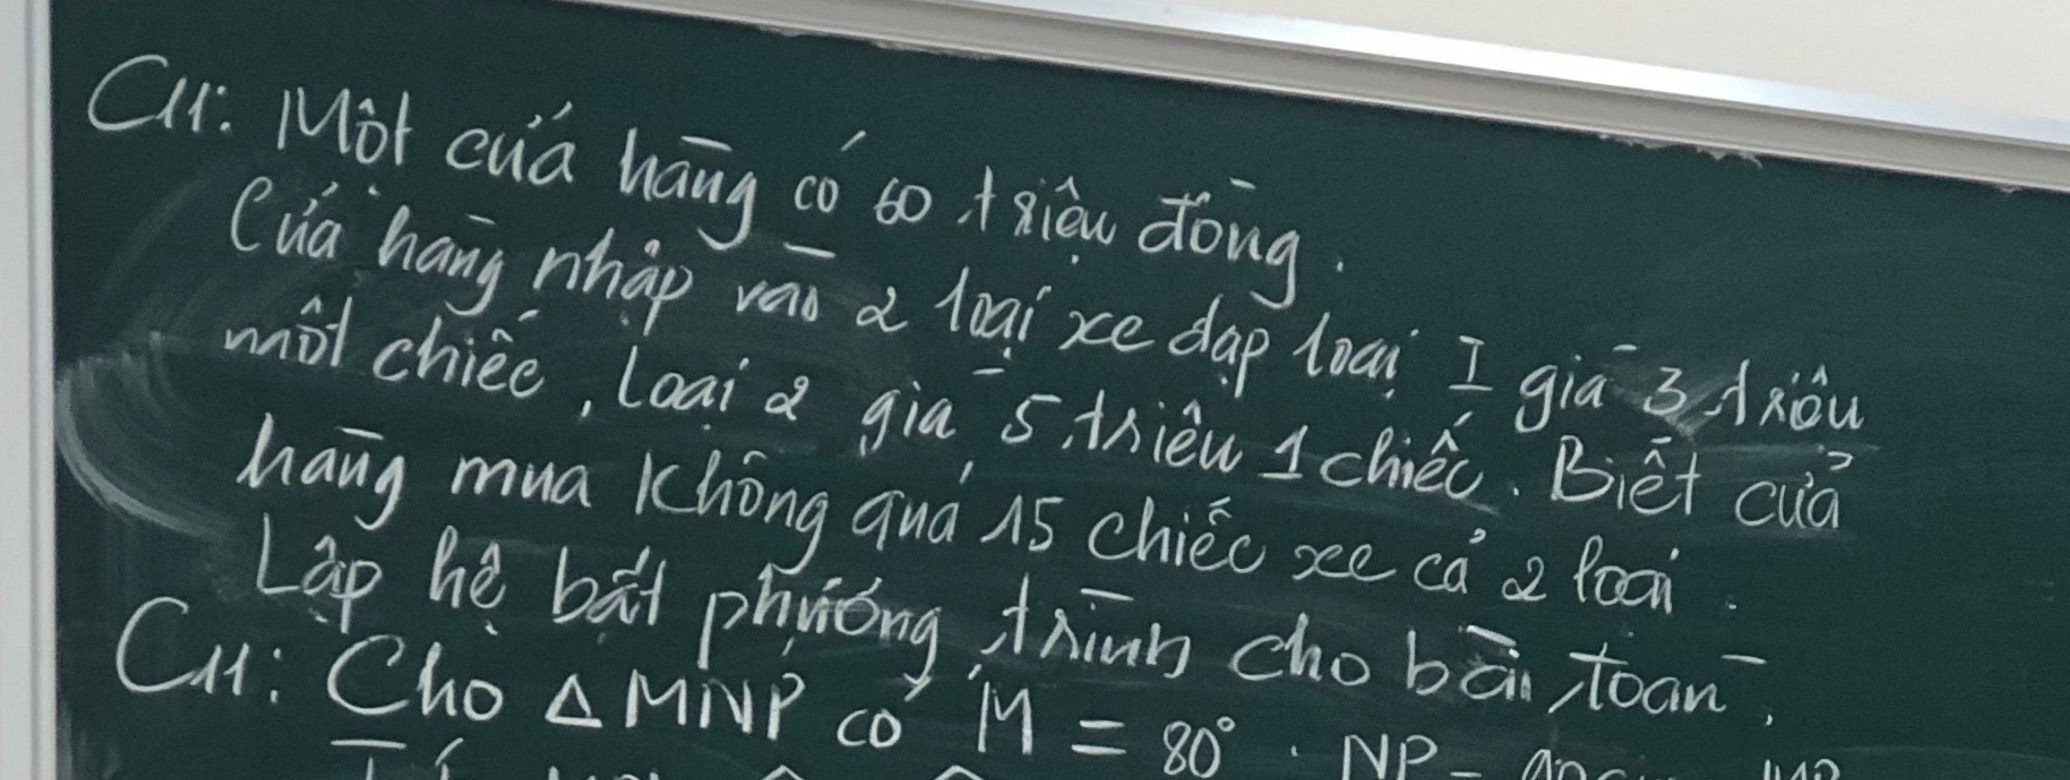 CII: Một cửa hàng có 60 triệu đồng.
Cửa hàng nhập vào 2 loại xe đạp loại I giá 3 triệu
một chiếc, loại 2 giá 5 triệu 1 chiếc. Biết cửa
hàng mua không quá 15 chiếc xe cả 2 loại.
Lập hệ bất phương trình cho bài toán.
CII: Cho △MNP có M = 80°. NP =